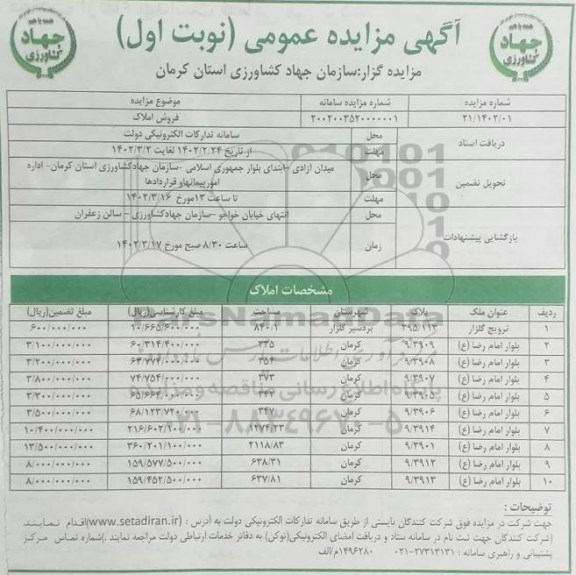 آگهی مزایده عمومی (نوبت اول)
مزایده گزار:سازمان جهاد کشاورزی استان کرمان
همه با هم
جهاد
کشاورزی
همه با هم
جهاد
کشاورزی
شماره مزایده شماره مزایده سامانه موضوع مزایده
۲۱/۱۴۰۲/۰۱ ۲۰۰۲۰۰۳۵۲۰۰۰۰۰۰۱ فروش املاک
دریافت اسناد محل سامانه تدارکات الکترونیکی دولت
مهلت از تاریخ ۱۴۰۲/۲/۲۴ لغایت ۱۴۰۲/۳/۲
تحویل تضمین محل میدان آزادی -ابتدای بلوار جمهوری اسلامی -سازمان جهادکشاورزی استان کرمان- اداره
امورپیمانهاو قراردادها
مهلت تا ساعت ۱۳مورخ ۱۴۰۲/۳/۱۶
بازگشایی پیشنهادات محل انتهای خیابان خواجو -سازمان جهادکشاورزی - سالن زعفران
زمان ساعت ۸/۳۰ صبح مورخ ۱۴۰۲/۳/۱۷
مشخصات املاک
ردیف عنوان ملک پلاک شهرستان مساحت مبلغ کارشناسی(ریال) مبلغ تضمین(ریال)
۱ ترویج گلزار ۳۹۵/۱۱۳ بردسیر گلزار ۸۴۰/۱ ۱۰/۶۶۵/۶۰۰/۰۰۰ ۶۰۰/۰۰۰/۰۰۰
۲ بلوار امام رضا (ع) ۹/۳۹۰۹ کرمان ۳۳۵ ۶۰/۳۱۴/۴۰۰/۰۰۰ ۳/۱۰۰/۰۰۰/۰۰۰
۳ بلوار امام رضا (ع) ۹/۳۹۰۸ کرمان ۳۵۴ ۳/۲۰۰/۰۰۰/۰۰۰
۴ بلوار امام رضا (ع) ۹/۳۹۰۷ کرمان ۳۷۳ ۷۴/۷۵۴/۰۰۰/۰۰۰ ۳/۸۰۰/۰۰۰/۰۰۰
۵ بلوار امام رضا (ع) کرمان ۳/۳۰۰/۰۰۰/۰۰۰
۶ بلوار امام رضا (ع) ۹/۳۹۰۶ کرمان ۳۴۷ ۳/۵۰۰/۰۰۰/۰۰۰
۷ بلوار امام رضا (ع) ۹/۳۹۱۴ کرمان ۱۴۷۴/۲۳ ۲۱۶/۶۰۲/۰۰۰/۰۰۰ ۱۰/۴۰۰/۰۰۰/۰۰۰
۸ بلوار امام رضا (ع) ۹/۳۹۰۱ کرمان ۲۱۱۸/۸۳ ۳۶۰/۲۰۱/۱۰۰/۰۰۰ ۱۳/۵۰۰/۰۰۰/۰۰۰
۹ بلوار امام رضا (ع) ۹/۳۹۱۲ کرمان ۶۳۸/۳۱ ۱۵۹/۵۷۷/۵۰۰/۰۰۰ ۸/۰۰۰/۰۰۰/۰۰۰
۱۰ بلوار امام رضا (ع) ۹/۳۹۱۳ کرمان ۶۳۷/۸۱ ۱۵۹/۴۵۲/۵۰۰/۰۰۰ ۸/۰۰۰/۰۰۰/۰۰۰
ParsNamadData
پایگاه اطلاع رسانی مناقصه و مزایده
۰۲۱-۸۸۳۴۹۶۷۰-۵
توضیحات :
جهت شرکت در مزایده فوق شرکت کنندگان بایستی از طریق سامانه تدارکات الکترونیکی دولت به آدرس : (www.setadiran.ir)اقدام نمایند
(شرکت کنندگان جهت ثبت نام در سامانه ستاد و دریافت امضای الکترونیکی(توکن) به دفاتر خدمات ارتباطی دولت مراجعه نمایند .)شماره تماس مرکز
پشتیبانی و راهبری سامانه : ۲۷۳۱۲۱۳۱-۰۲۱ ۱۴۹۶۲۸۰م/الف